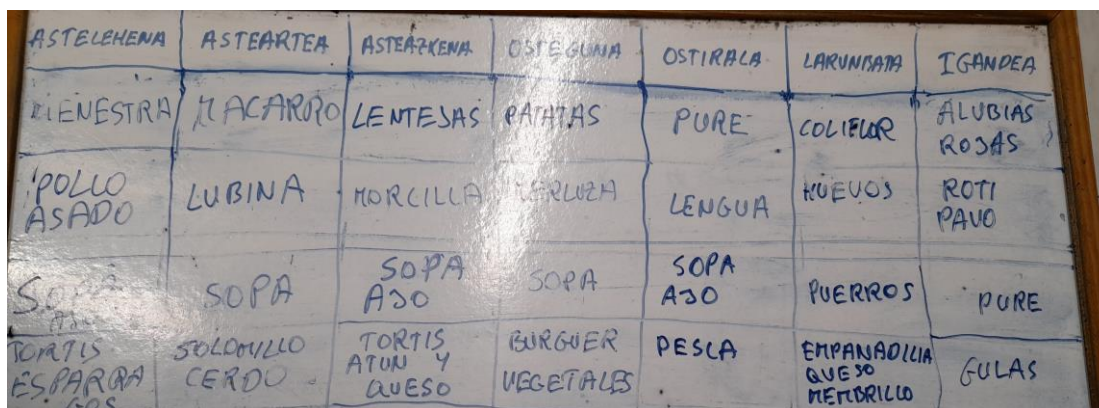 ASTELEHENA ASTEARTEA ASTEAZKENA OSTEGUNA OSTIRALA LARUNBATA IGANDEA
MENESTRA MACARRO LENTEJAS PATATAS PURE COLIFLOR ALUBIAS
ROJAS
POLLO
ASADO LUBINA MORCILLA MERLUZA LENGUA HUEVOS ROTI
PAVO
SOPA
AJO SOPA SOPA
AJO SOPA SOPA
AJO PUERROS PURE
TORTIS
ESPARRA
GOS SOLOMILLO
CERDO TORTIS
ATUN Y
QUESO BURGUER
VEGETALES PESCA EMPANADILLA
QUESO
MEMBRILLO GULAS